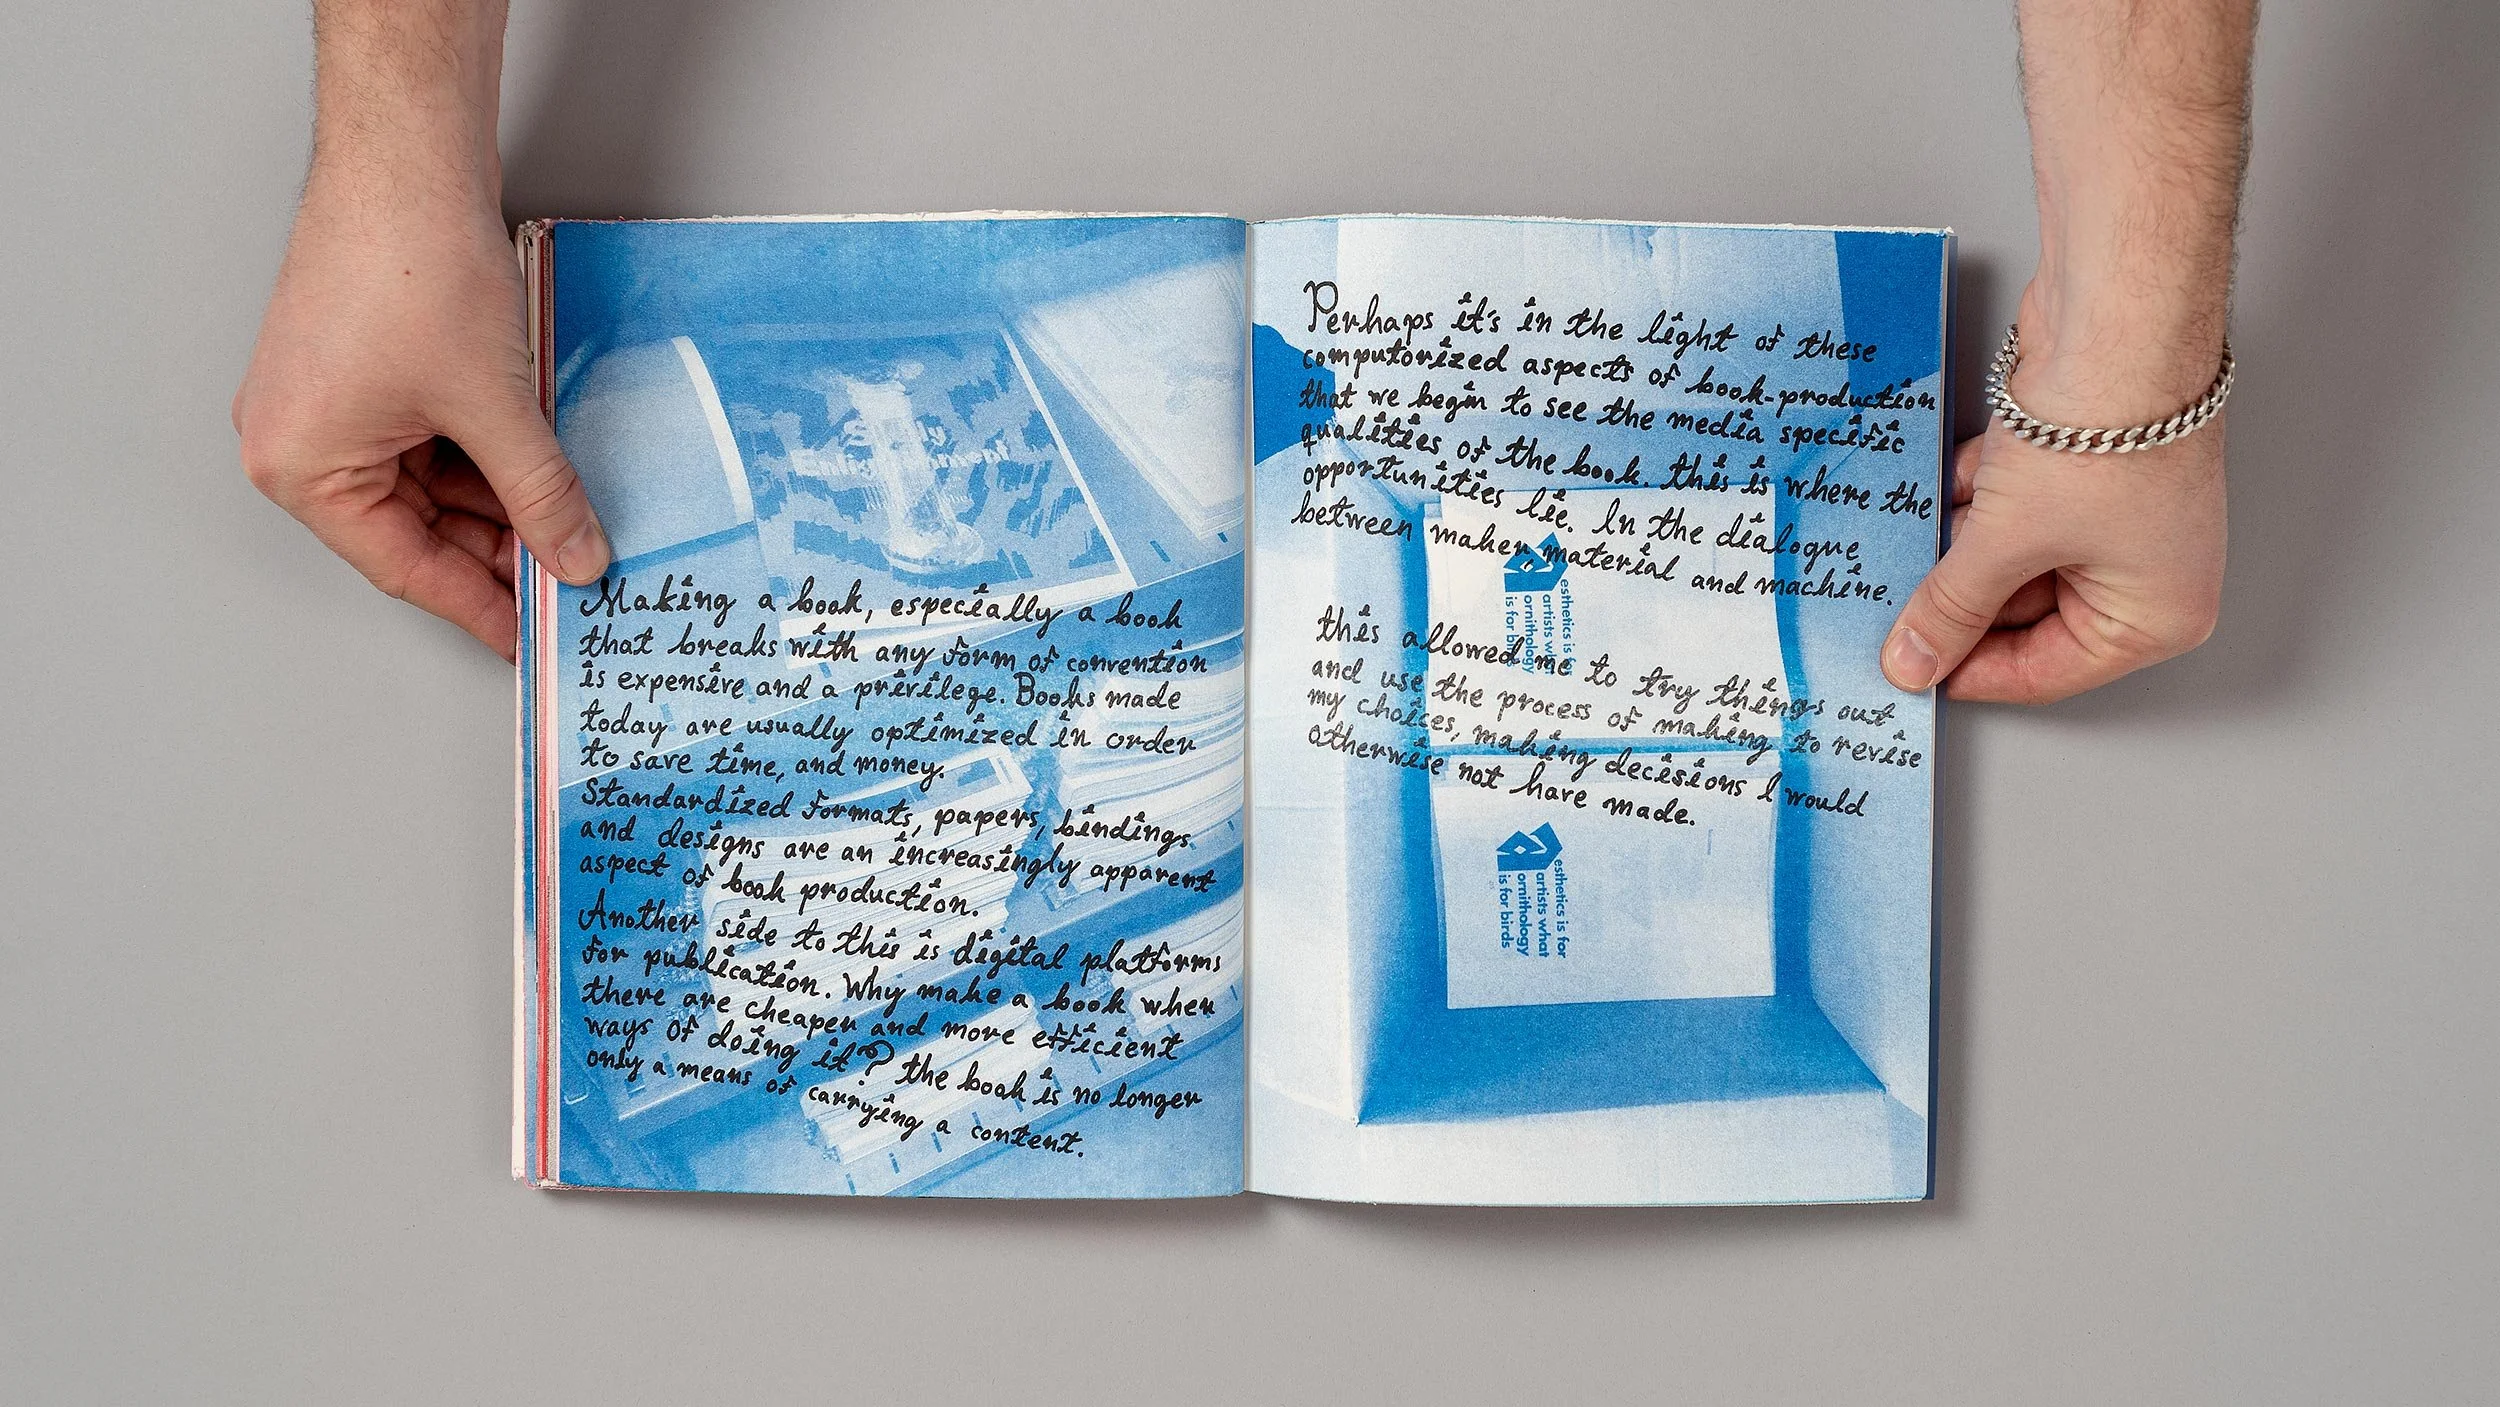 Making a book, especially a book
that breaks with any form of convention
is expensive and a privilege. Books made
today are usually optimized in order
to save time, and money.
Standardized formats, papers, bindings
and designs are an increasingly apparent
aspect of book production.
Another side to this is digital platforms
for publication. Why make a book when
there are cheaper and more efficient
ways of doing it? the book is no longer
only a means of carrying a content.
Perhaps it's in the light of these
computorized aspects of book-production
that we begin to see the media specific
qualities of the book. this is where the
opportunities lie. In the dialogue
between maker, material and machine.
this allowed me to try things out
and use the process of making to revise
my choices, making decisions I would
otherwise not have made.
esthetics is for
artists what
ornithology
is for birds
esthetics is for
artists what
ornithology
is for birds